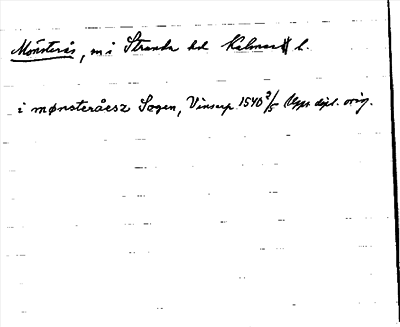 Mönsterås, m i Stranda hd Kalmar l.
i mønsteråesz Sogen, Vinserp 1540 2/5 Upps dipl. orig.